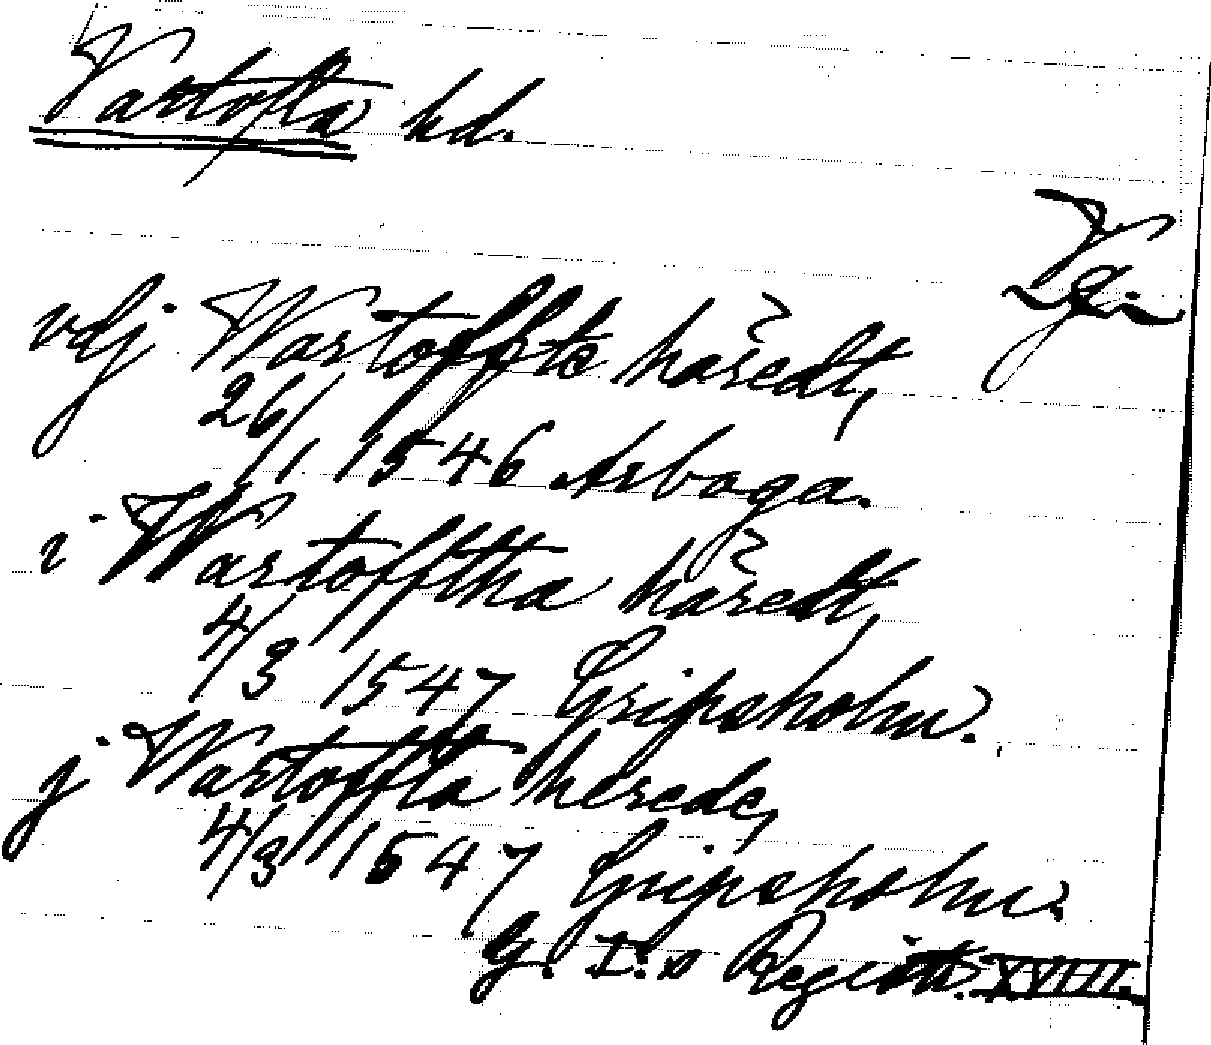 Vartofta hd.
Vg.
vdj Wartoffte häredt,
26/1 1546 Arboga.
i Wartofftha häredt,
4/3 1547 Gripsholm.
j Wartoffta herede,
4/3 1547 Gripsholm.
G. I:s Registr. XVIII.